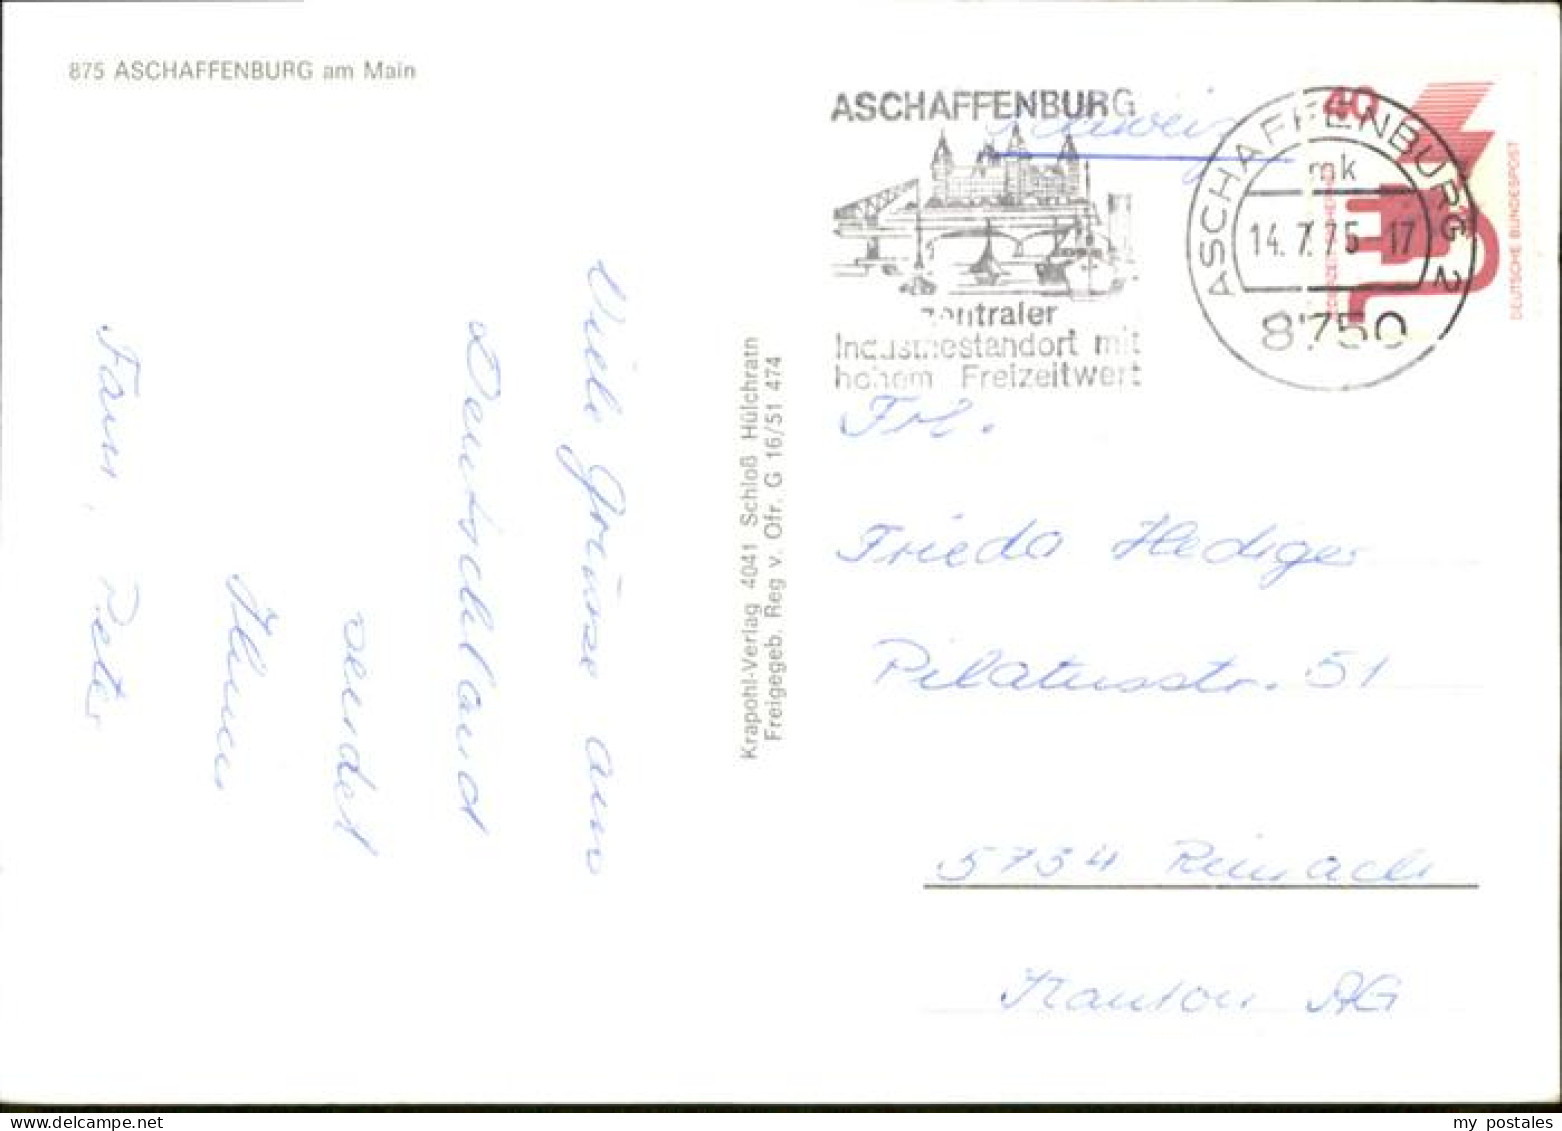 875 ASCHAFFENBURG am Main
Viele Grüsse aus
Deutschland
sendet
Ihnen
Fam. Peter
Krapohl-Verlag 4041 Schloß Hülchrath
Freigegeb. Reg v. Ofr. G 16/51 474
ASCHAFFENBURG
zentraler
Industriestandort mit
hohem Freizeitwert
Schweiz
ASCHAFFENBURG 2
mk
14.7.75-17
8750
40
DEUTSCHE BUNDESPOST
Frl.
Frieda Hediger
Pilatusstr. 51
5734 Reinach
Kanton AG
my postales